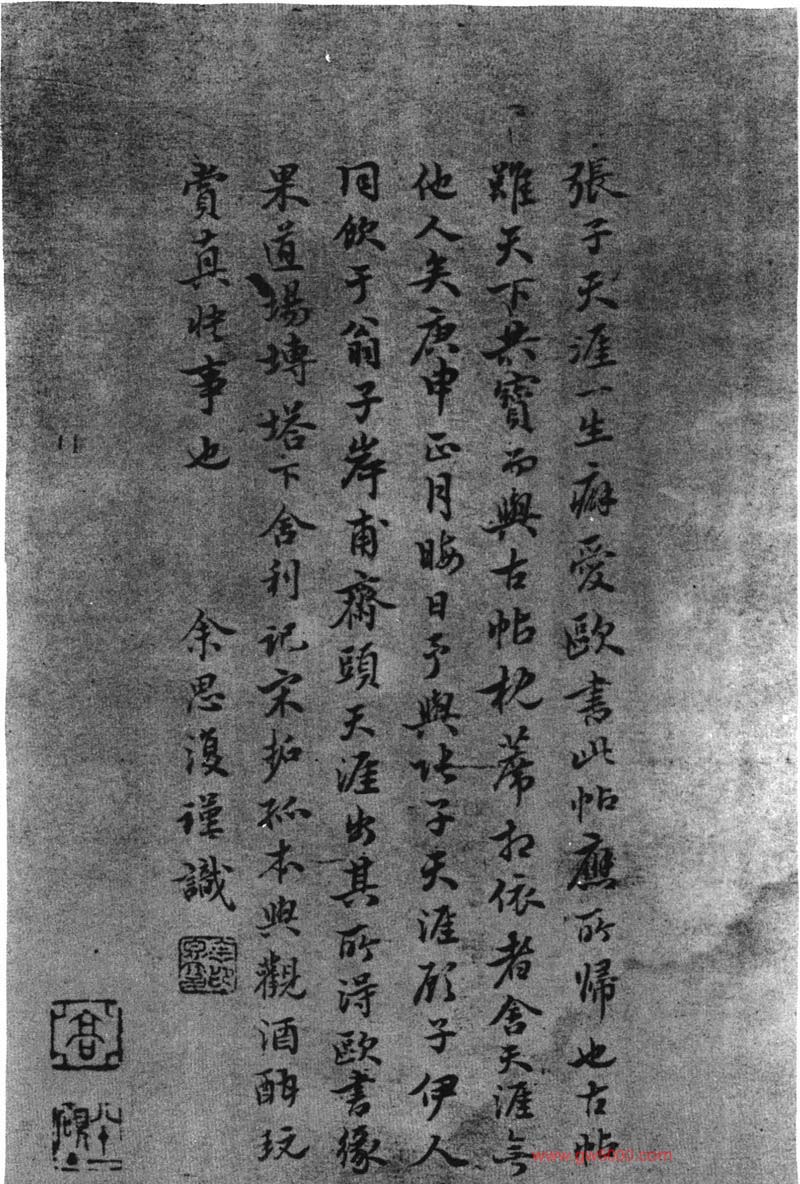 張子天涯一生癖愛歐書此帖應所歸也古帖
雖天下共寶而與古帖枕蓆相依者舍天涯無
他人矣庚申正月晦日予與張子天涯顧子伊人
同飲于翁子岸甫齋頭天涯出其所得歐書緣
果道場塼塔下舍利記宋拓孤本與觀酒酣玩
賞真快事也 余思復謹識